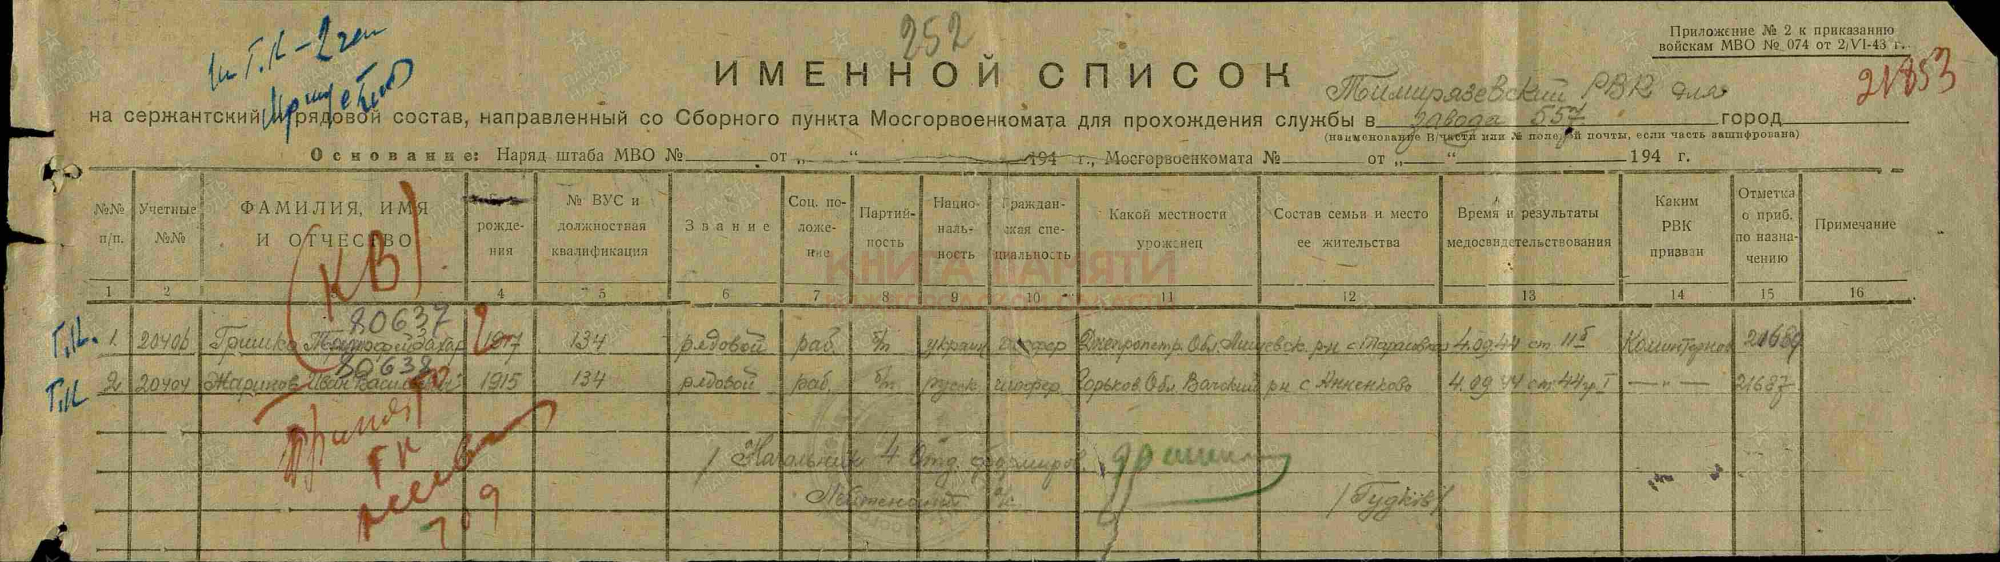 252
Приложение № 2 к приказанию
войскам МВО № 074 от 2/VI-43 г.
21853
ИМЕННОЙ СПИСОК
Тимирязевский РВК для
на сержантский и рядовой состав, направленный со Сборного пункта Мосгорвоенкомата для прохождения службы в завода 557 город
(наименование В/части или № полевой почты, если часть зашифрована)
Основание: Наряд штаба МВО № от „ “ 194 г., Мосгорвоенкомата № от „ “ 194 г.
№№ п/п. Учетные №№ ФАМИЛИЯ, ИМЯ И ОТЧЕСТВО рождения № ВУС и должностная квалификация Звание Соц. положение Партийность Национальность Гражданская специальность Какой местности уроженец Состав семьи и место ее жительства Время и результаты медосвидетельствования Каким РВК призван Отметка о приб. по назначению Примечание
(КВ)
КНИГА ПАМЯТИ
НИЖЕГОРОДСКОЙ ОБЛАСТИ
1 2 4 5 6 7 8 9 10 11 12 13 14 15 16
80637
Г.К. 1. 20406 Гришко Тимофей Захар 1917 134 рядовой раб. б/п украин шофер Днепропетр. Обл. р-н с. 4.09.44 ст. Коминтернов 21689
80638
Г.К. 2. 20404 Жаринов Иван Васильевич 1915 134 рядовой раб. б/п русск шофер Горьков. Обл. Вачский р-н с. Анненково 4.09.44 ст. 44 г. I — „ — 21687
ГК
/ Начальник 4 Отд. формиров.
Лейтенант
/Гудков/
709